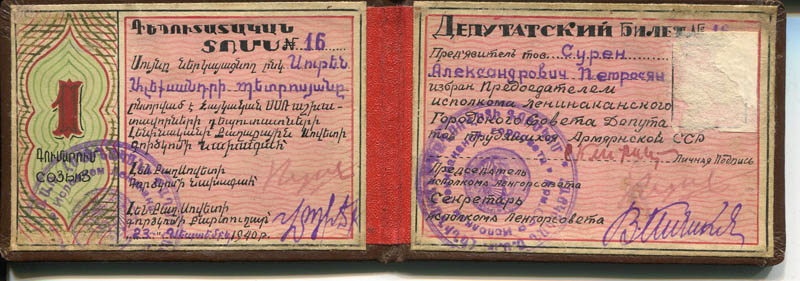 1
ԳՈՒՄԱՐՈՒՄ
СОЗЫВ
ԴԵՊՈՒՏԱՏԱԿԱՆ
ՏՈՄՍ № 16
Սույնը ներկայացնող ընկ Սուրեն
Ալեքսանդրի Պետրոսյանը
ընտրված է Հայկական ՍՍՌ աշխա-
տավորների դեպուտատների
Լենինականի Քաղաքային Սովետի
գործկոմի Նախագահ
Լեն Քաղսովետի
Գործկոմի Նախագահ
Լեն Քաղսովետի
գործկոմի Քարտուղար
1940 г.
ДЕПУТАТСКИЙ БИЛЕТ № 16
Пред'явитель тов. Сурен
Александрович Петросян
избран Председателем
исполкома Ленинаканского
Городского Совета Депута
тов трудящихся Армянской ССР
Личная Подпись
Председатель
исполкома Ленгорсовета
Секретарь
исполкома Ленгорсовета